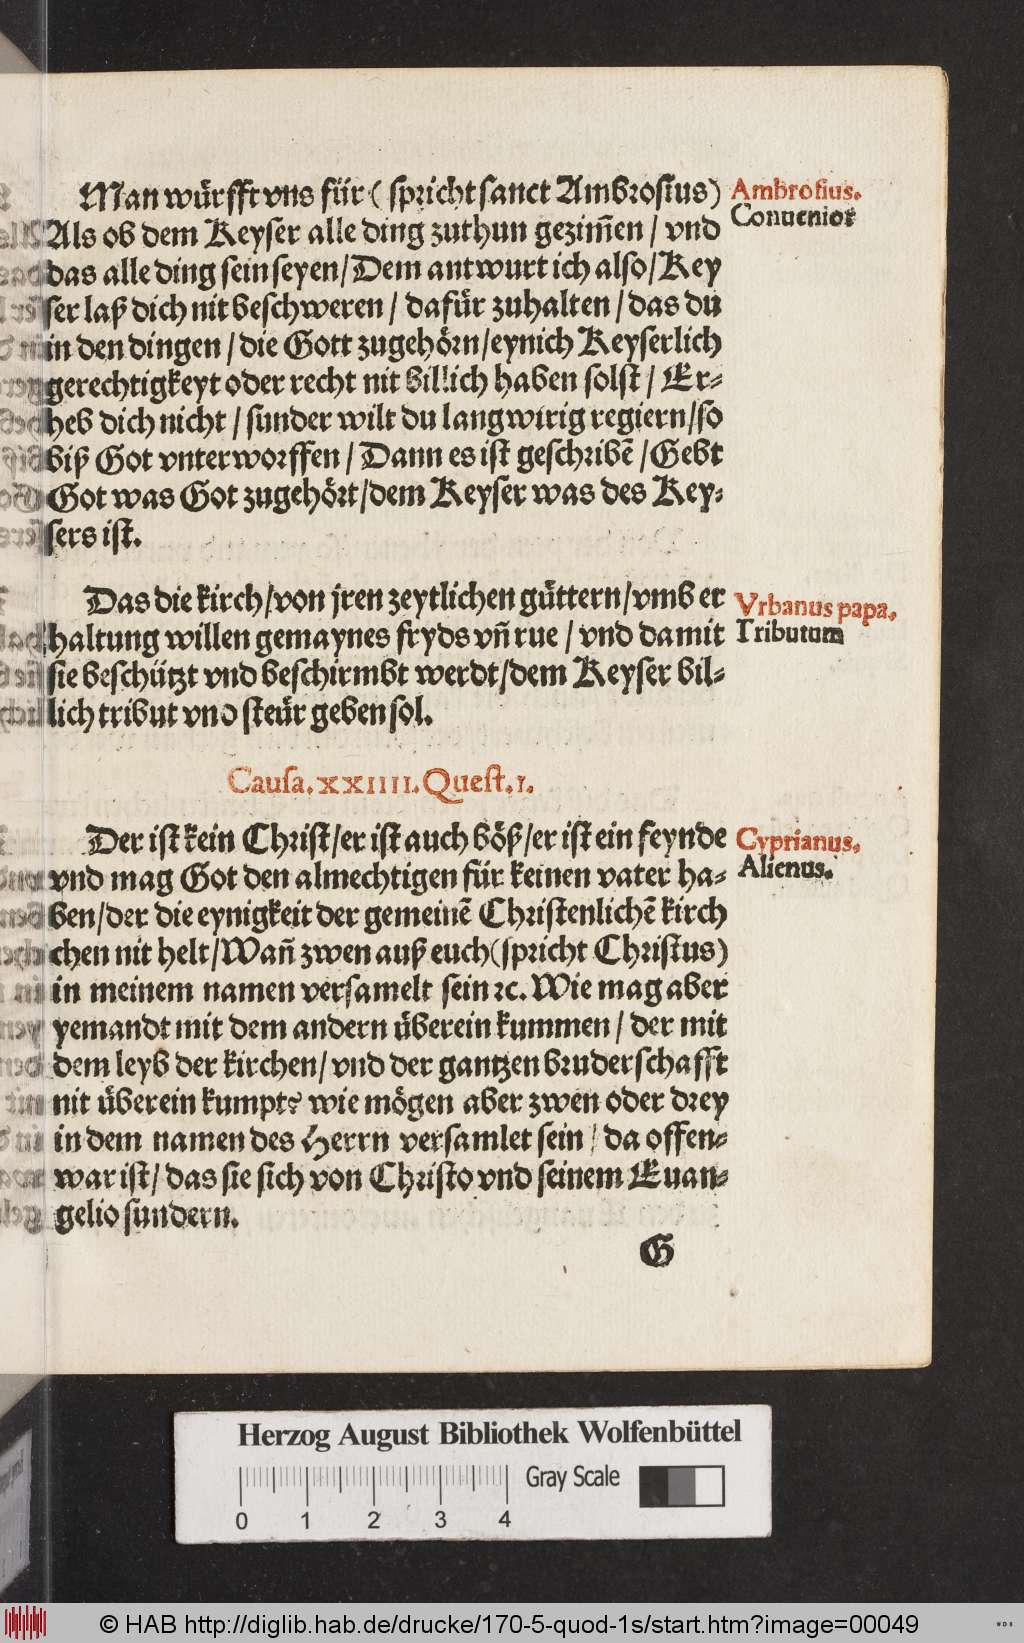 Man würfft vns für ( spricht sanct Ambrosius)
Ambrosius.
Conuenior
Als ob dem Keyser alle ding zuthun gezim̃en / vnd
das alle ding sein seyen / Dem antwurt ich also / Key
ser laß dich nit beschweren / dafür zuhalten / das du
in den dingen / die Gott zugehörn / eynich Keyserlich
gerechtigkeyt oder recht nit billich haben solst / Er-
heb dich nicht / sunder wilt du langwirig regiern / so
biß Got vnterworffen / Dann es ist geschribẽ / Gebt
Got was Got zugehört / dem Keyser was des Key-
sers ist.
Das die kirch / von jren zeytlichen güttern / vmb er
Vrbanus papa.
Tributum
haltung willen gemaynes fryds vñ rue / vnd damit
sie beschützt vnd beschirmbt werdt / dem Keyser bil-
lich tribut vnd steür geben sol.
Causa. XXIIII. Quest. 1.
Der ist kein Christ / er ist auch böß / er ist ein feynde
Cyprianus.
Alienus.
vnd mag Got den almechtigen für keinen vater ha-
ben / der die eynigkeit der gemeinẽ Christenlichẽ kirch
chen nit helt / Wañ zwen auß euch (spricht Christus)
in meinem namen versamelt sein ꝛc. Wie mag aber
yemandt mit dem andern überein kummen / der mit
dem leyb der kirchen / vnd der gantzen bruderschafft
nit überein kumpt? wie mögen aber zwen oder drey
in dem namen des Herrn versamlet sein / da offen-
war ist / das sie sich von Christo vnd seinem Euan-
gelio sundern.
G
Herzog August Bibliothek Wolfenbüttel
Gray Scale
0 1 2 3 4
© HAB http://diglib.hab.de/drucke/170-5-quod-1s/start.htm?image=00049